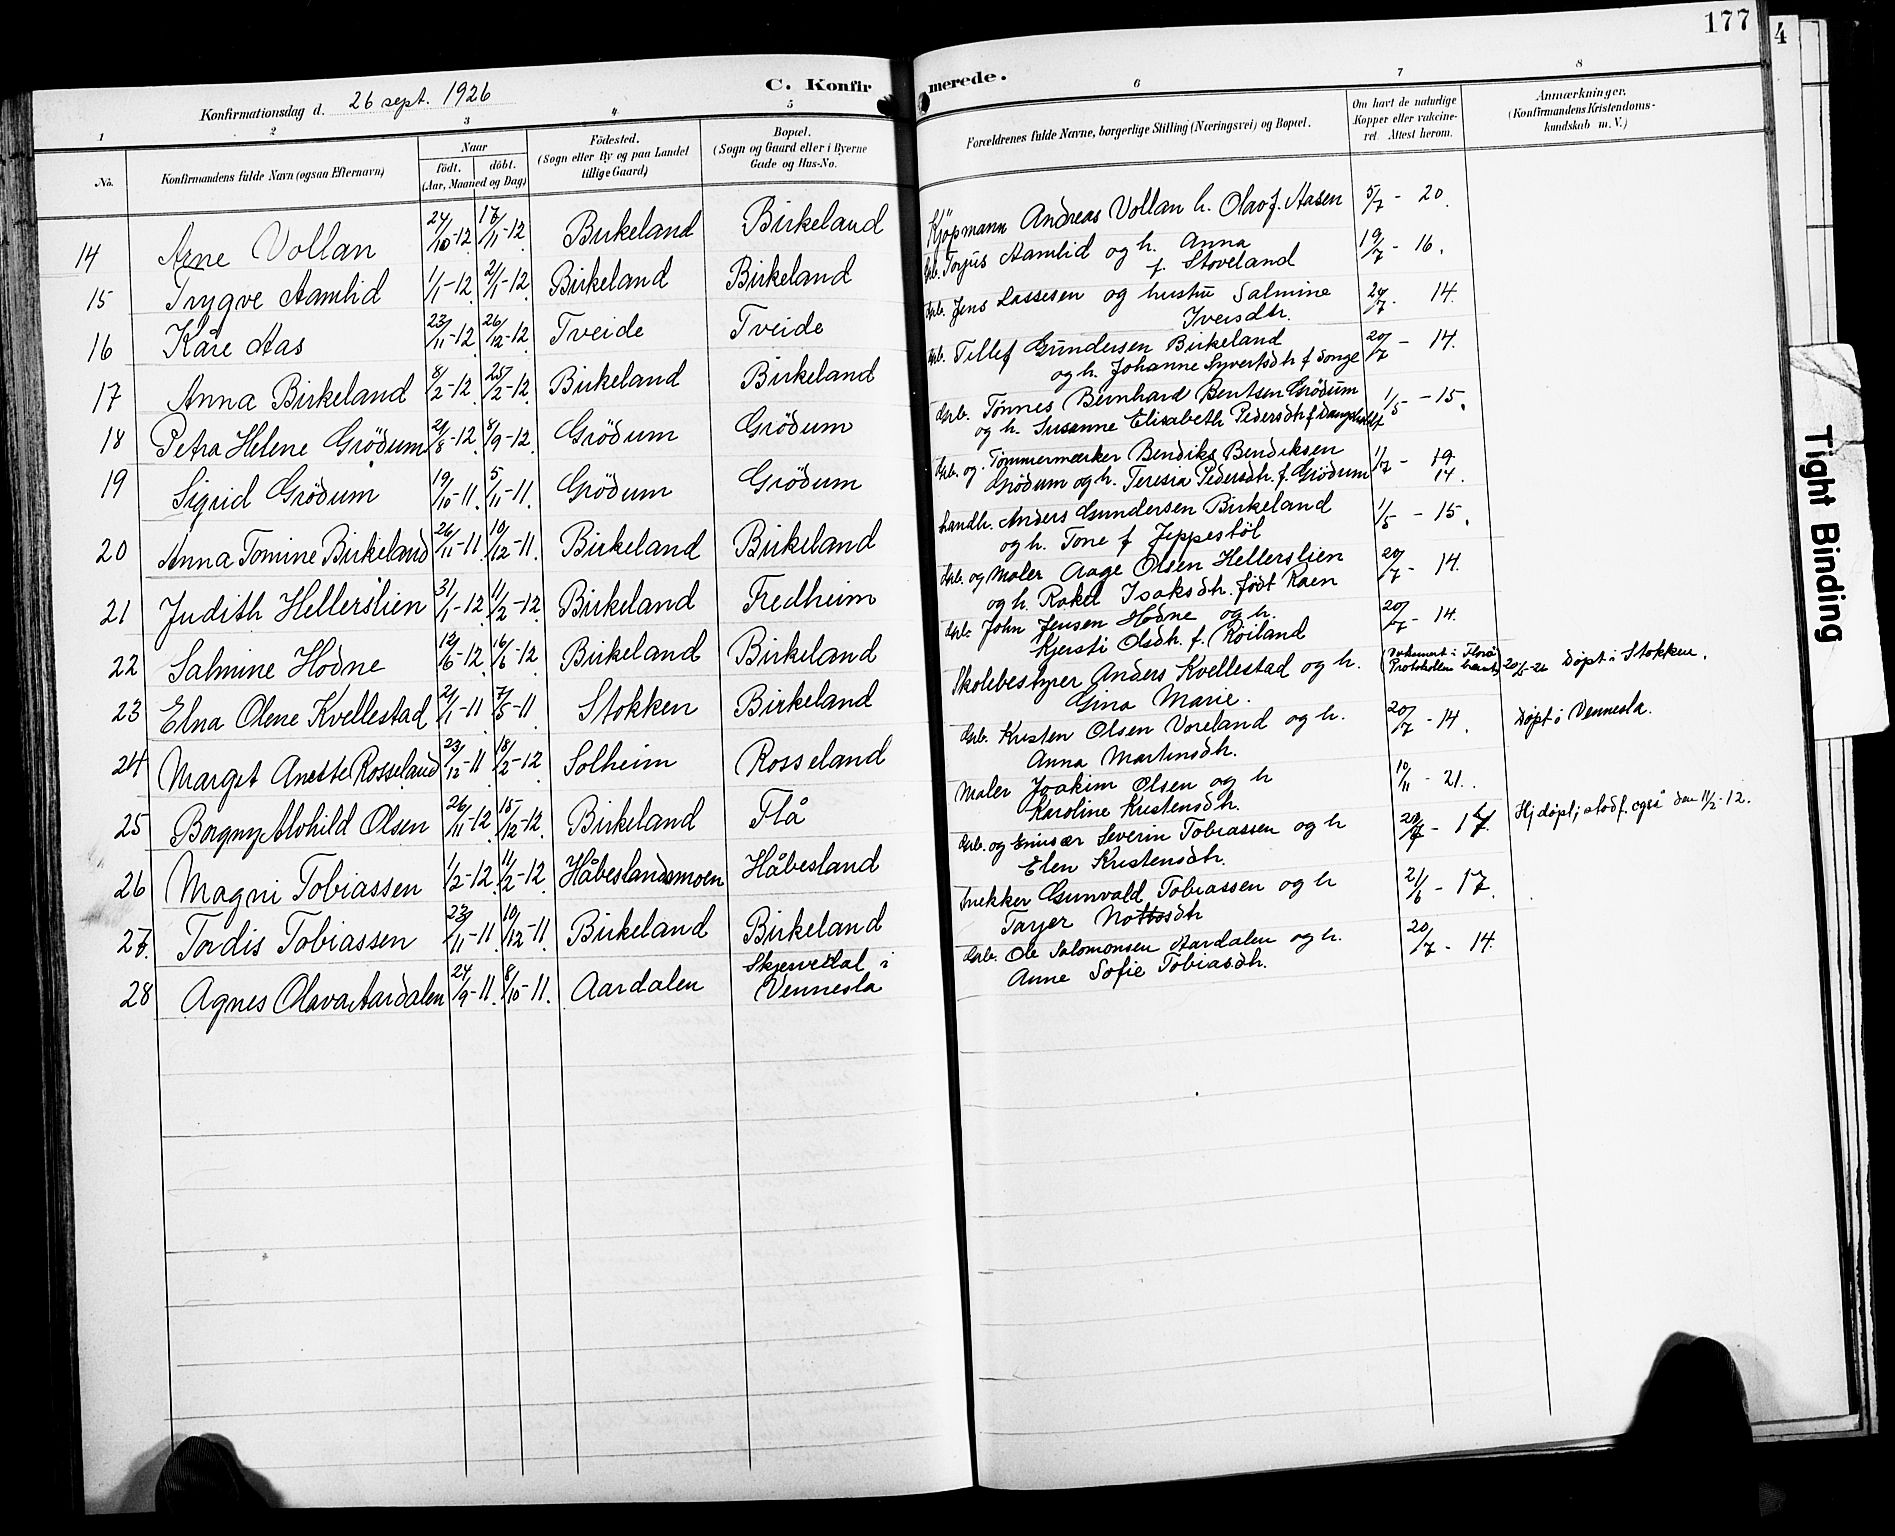 177
4
C. Konfirmerede.
Konfirmationsdag d. 26 sept. 1926
1 2 3 4 5 6 7 8
No.
Konfirmandens fulde Navn (ogsaa Efternavn)
Naar
født. døbt.
(Aar, Maaned og Dag)
Fødested.
(Sogn eller By og paa Landet
tillige Gaard)
Bopæl.
(Sogn og Gaard eller i Byerne
Gade og Hus-No.
Forældrenes fulde Navne, borgerlige Stilling (Næringsvei) og Bopæl.
Om havt de naturlige
Kopper eller vaccine-
ret. Attest herom.
Anmærkninger.
(Konfirmandens Kristendoms-
kundskab m. V.)
14 Arne Vollan 24/10-12 17/11-12. Birkeland Birkeland Kjöpmann Andreas Vollan h. Olava f. Aasen 5/7 - 20.
15 Trygve Aamlid 1/1-12 2/1-12 Birkeland Birkeland Grb. Torjus Aamlid og h. Anna 19/7 - 16.
f. Stoveland
16 Kåre Aas 23/11-12 26/12-12 Tveide Tveide Grb. Jens Lassesen og hustru Salmine 24/7. 14.
Iversdtr.
17 Anna Birkeland 8/2-12 25/2-12 Birkeland Birkeland Grb. Tellef Gundersen Birkeland 20/7 - 14.
og h. Johanne Syvertsdtr f Songe
18 Petra Helene Grödum 24/8-12 8/9-12. Grödum Grödum Grb. Tønnes Bernhard Bentsen Grödum 1/5 - 15.
og h. Susanne Elisabeth Pedersdtr f
19 Sigrid Grödum 19/10-11. 5/11-11. Grödum Grödum Grb. og Tömmermærker Bendiks Bendiksen 1/7 - 19
Grödum og h. Teresia Pedersdtr. f. Grödum 14.
20 Anna Tomine Birkeland 26/11-11 10/12-11. Birkeland Birkeland Landh. Anders Gundersen Birkeland 1/5 - 15.
og h. Tone f Jeppestöl
21 Judith Hellerslien 31/1-12 11/2-12. Birkeland Fredheim Grb. og Maler Aage Olsen Hellerslien 20/7 - 14.
og h. Rakel Isaksdtr. født Raen
22 Salmine Hodne 12/6-12. 16/6-12 Birkeland Birkeland Grb. John Jensen Hodne og h. 20/7 - 14.
Kjersti Olsdtr. f. Röiland
23 Elna Olene Kvellestad 2/1-11 7/5-11 Stokken Birkeland Skolebestyrer Anders Kvellestad og h. 20/5-26 Döpt i Stokken.
Gina Marie.
24 Margit Anette Rosseland 23/12-11 18/2-12 Solheim Rosseland Grb. Kristen Olsen Voreland og h. 20/7 - 14. Döpt i Vennesla.
Anna Martinsdtr.
25 Borgny Alohild Olsen 26/11-12 15/12-12. Birkeland Flå Maler Joakim Olsen og h 10/11 - 21.
Karoline Kristensdtr.
26 Magni Tobiassen 1/2-12. 11/2-12. Håbeslandsmoen Håbesland Grb. og Severin Tobiassen og h 20/7 - 14. Hj döpt; stadf. også den 11/2-12.
Elen Kristensdtr.
27. Tordis Tobiassen 23/11-11 10/12-11. Birkeland Birkeland Snekker Gunvald Tobiassen og h 21/6 - 17.
Tarjer
28 Agnes Olava Aardalen 24/9-11. 8/10-11. Aardalen Skjeredal i Grb. Ole Salomonsen Aardalen og h. 20/7 - 14.
Vennesla Anne Sofie Tobiasdtr.
Tight Binding